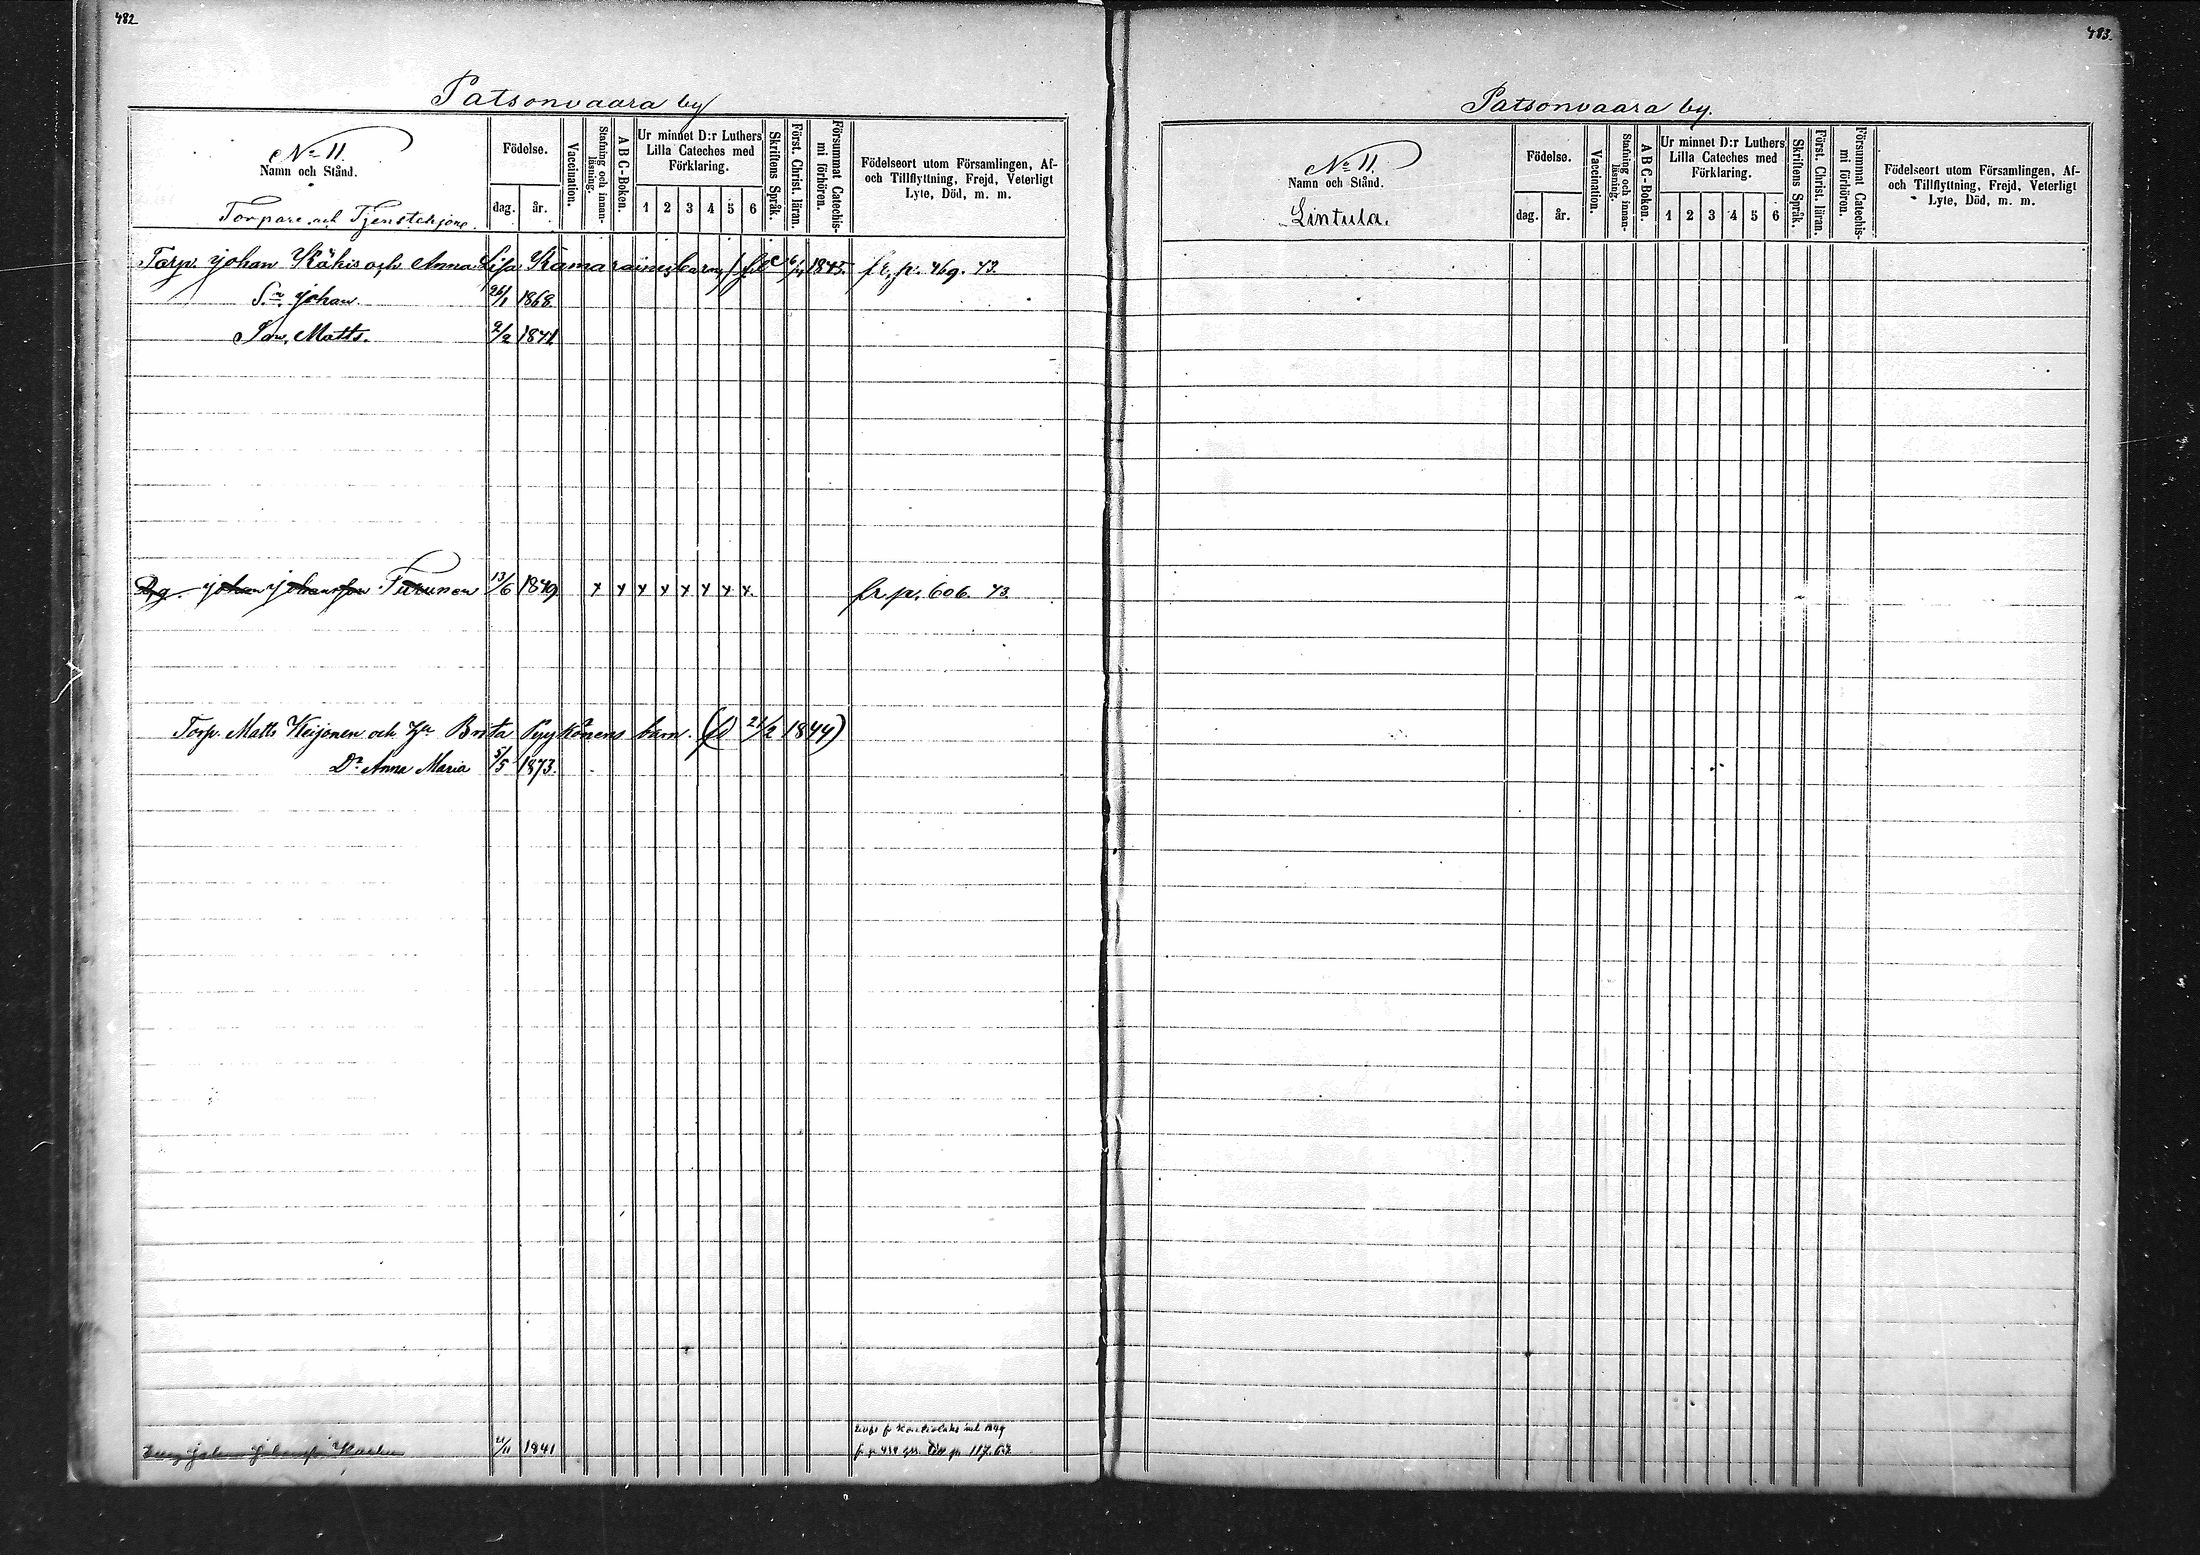 482
Patsonvaara by
No 11.
Namn och Stånd.
Torpare och Tjenstehjone.
Födelse.
dag. år.
Vaccination.
Stafning och innanläsning.
ABC-Boken.
Ur minnet D:r Luthers
Lilla Cateches med
Förklaring.
1 2 3 4 5 6
Skriftens Språk.
Först. Christ. läran.
Försummat Catechismi förhören.
Födelseort utom Församlingen, Af-
och Tillflyttning, Frejd, Veterligt
Lyte, Död, m. m.
Torp. Johan Kähis och Anna Lisa 1845. fr. p. 469. 73.
Sn. Johan 26/1 1868.
Son, Matts. 2/2 1871
Johan Johansson Turunen 13/6 1849 x x x x x x x x fr. p. 606. 73.
Torp. Matts Keijonen och Brita Pyykönens barn. (fd 21/2 1844)
Dr Anna Maria 5/5 1873.
Johan 1841
fr. p.
483.
Patsonvaara by.
No 11.
Namn och Stånd.
Lintula.
Födelse.
dag. år.
Vaccination.
Stafning och innanläsning.
ABC-Boken.
Ur minnet D:r Luthers
Lilla Cateches med
Förklaring.
1 2 3 4 5 6
Skriftens Språk.
Först. Christ. läran.
Försummat Catechismi förhören.
Födelseort utom Församlingen, Af-
och Tillflyttning, Frejd, Veterligt
Lyte, Död, m. m.